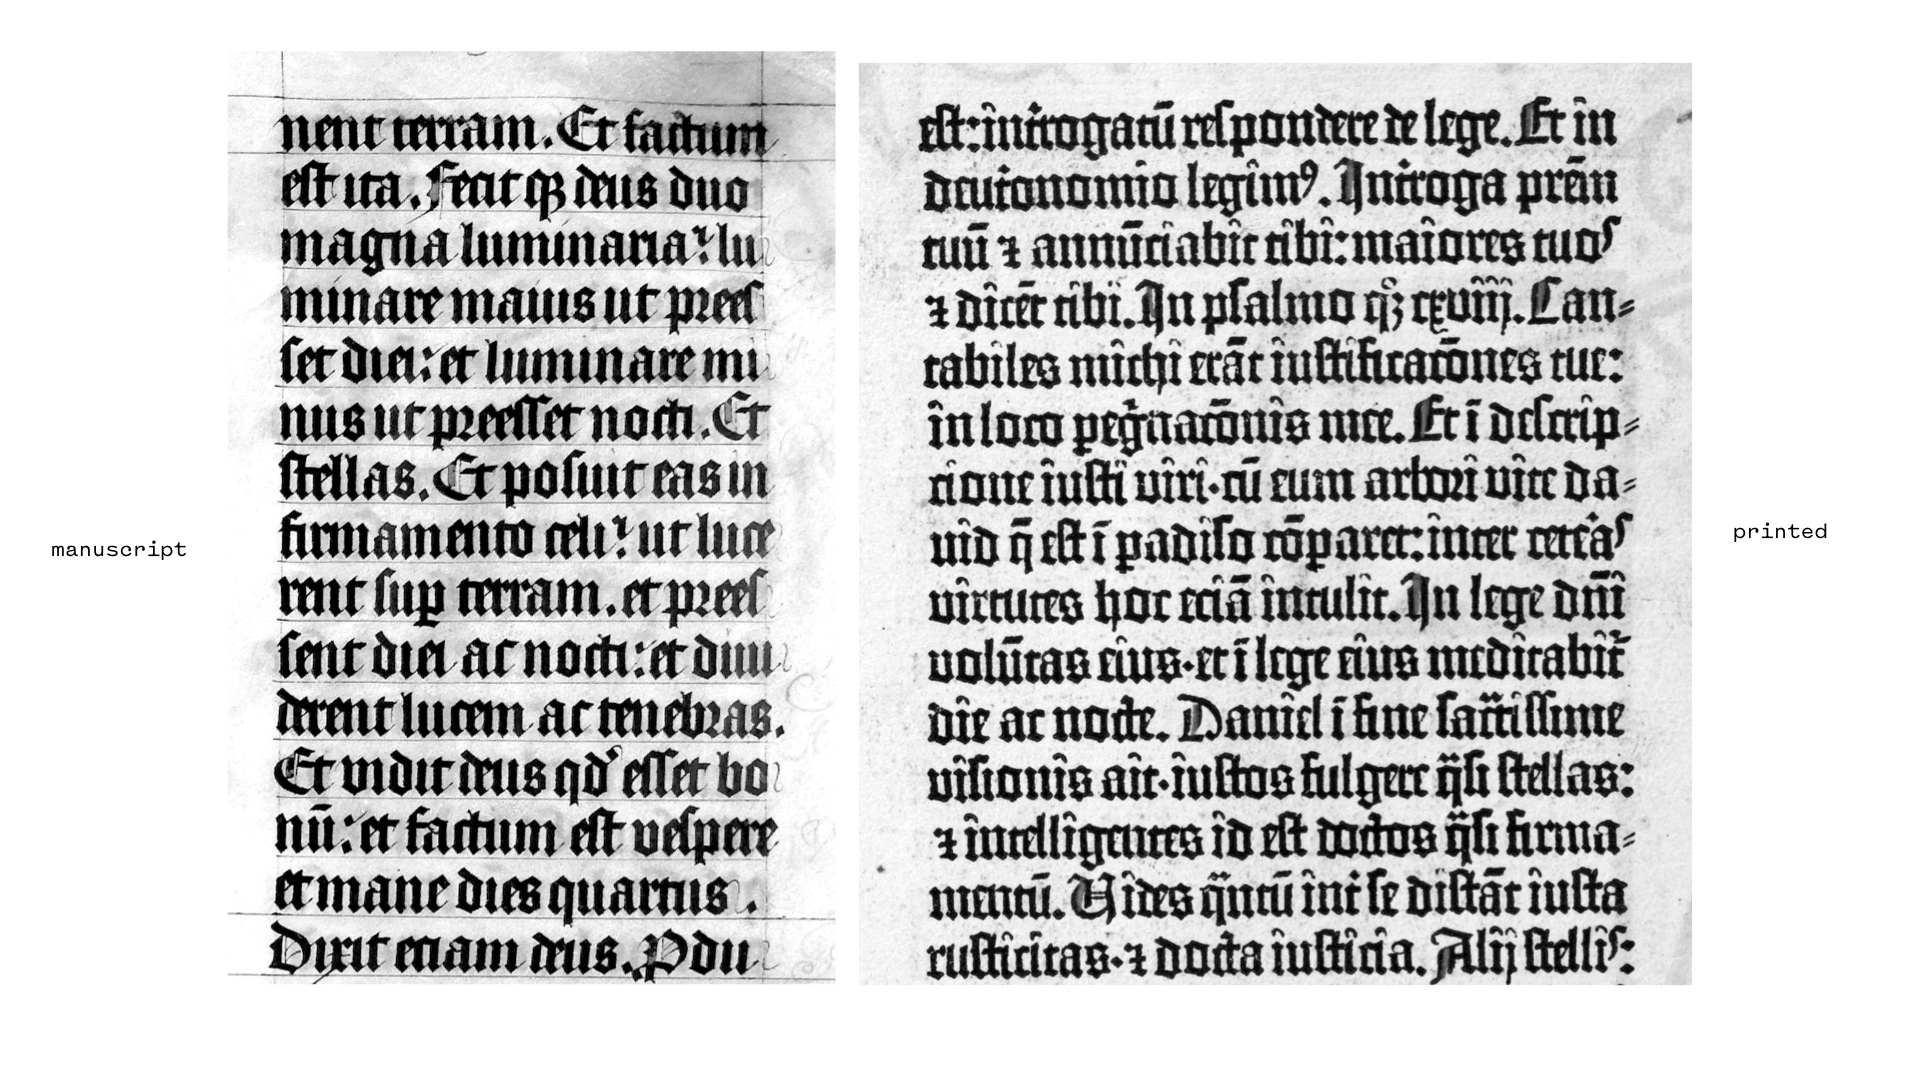 manuscript
nent terram. Et factum
est ita. Fecitqꝫ deus duo
magna luminaria: lu
minare maius ut prees
set diei: et luminare mi
nus ut preesset nocti. Et
stellas. Et posuit eas in
firmamento celi: ut luce
rent suꝑ terram. et prees
sent diei ac nocti: et diui
derent lucem ac tenebras.
Et vidit deus qd' esset bo
nū: et factum est vespere
et mane dies quartus.
Dixit etiam deus. Pdu
est: int̓rogatū respondere de lege. Et in
deut̓onomio legimꝰ. Int̓roga prēm
tuū ⁊ annūciabit tibi: maiores tuos
⁊ dicēt tibi. In psalmo qꝫ cxviij. Can-
tabiles michi erāt iustificatōnes tue:
in loco ꝑeg̓natōnis mee. Et ī descrip-
cione iusti viri·cū eum arbori vite da-
uid q̄ est ī ꝑadiso cōꝑaret: inter cete̓as
virtutes hoc eciā intulit. In lege dn̄i
volūtas eius·et ī lege eius meditabit̓
die ac nocte. Daniel ī fine sac̄tissime
visionis ait·iustos fulgere q̄si stellas:
⁊ intelligentes id est doctos q̄si firma-
mentū. Vides q̄ntū int̓ se distāt iusta
rusticitas·⁊ docta iusticia. Alij stellis:
printed